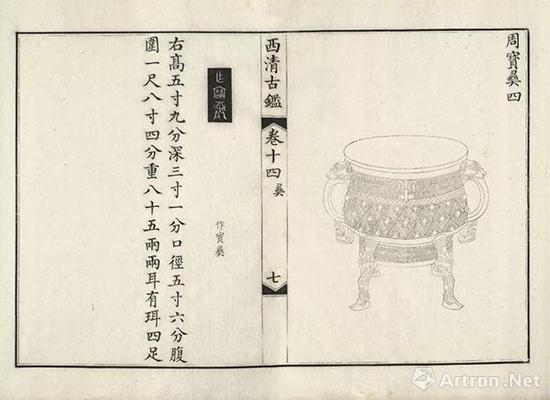 周寳彝四
西清古鑑
卷十四
彝
七
作寳彝
右髙五寸九分深三寸一分口徑五寸六分腹
圍一尺八寸四分重八十五兩兩耳有珥四足
Artron.Net